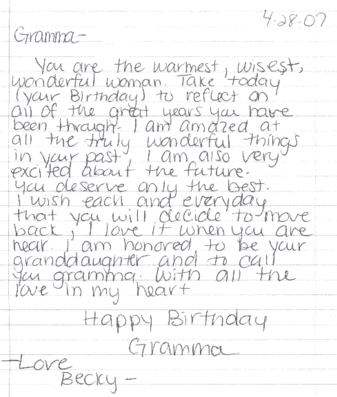 4-28-07
Gramma-
You are the warmest, wisest,
wonderful woman. Take today
(your Birthday) to reflect on
all of the great years you have
been through. I am amazed at
all the truly wonderful things
in your past, I am also very
excited about the future.
You deserve only the best.
I wish each and everyday
that you will decide to move
back, I love it when you are
hear. I am honored, to be your
granddaughter and to call
you gramma. With all the
love in my heart
Happy Birthday
Gramma
-Love
Becky-